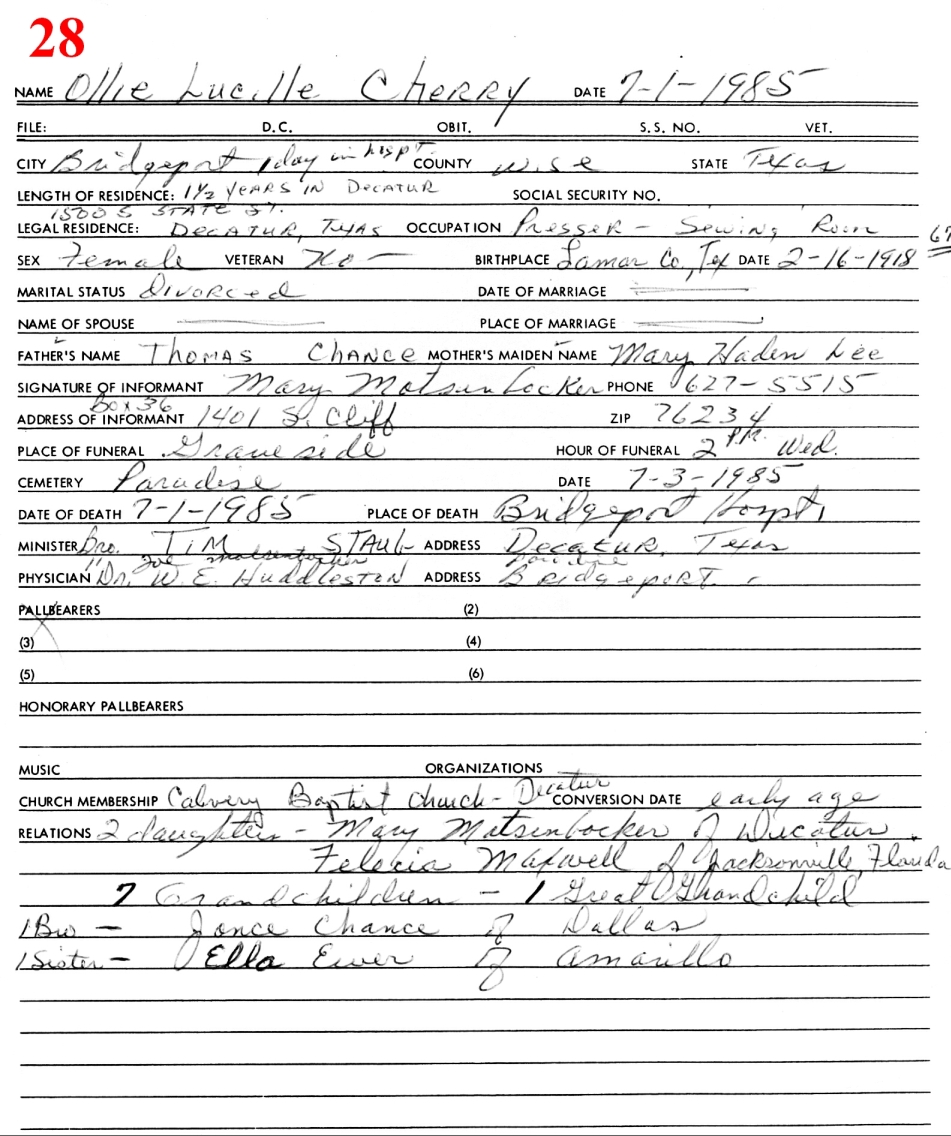 28
NAME Ollie Lucille Cherry DATE 7-1-1985
FILE: D.C. OBIT. S.S. NO. VET.
CITY Bridgeport 1 day in hospt COUNTY Wise STATE Texas
LENGTH OF RESIDENCE: 1½ YEARS IN DECATUR SOCIAL SECURITY NO.
1500 S STATE ST.
LEGAL RESIDENCE: DECATUR, TEXAS OCCUPATION Presser - Sewing Room 67
SEX Female VETERAN No - BIRTHPLACE Lamar Co., Tex DATE 2-16-1918
MARITAL STATUS Divorced DATE OF MARRIAGE
NAME OF SPOUSE PLACE OF MARRIAGE
FATHER'S NAME THOMAS CHANCE MOTHER'S MAIDEN NAME Mary Haden Lee
SIGNATURE OF INFORMANT Mary Matsenbocker PHONE 627-5515
Box 36
ADDRESS OF INFORMANT 1401 S. Cliff ZIP 76234
PLACE OF FUNERAL Graveside HOUR OF FUNERAL 2 PM. Wed.
CEMETERY Paradise DATE 7-3-1985
DATE OF DEATH 7-1-1985 PLACE OF DEATH Bridgeport Hospt.
MINISTER Bro. TIM STAUB ADDRESS Decatur, Texas
" Joe
PHYSICIAN Dr. W. E. Huddleston ADDRESS Bridgeport
PALLBEARERS (2)
(3) (4)
(5) (6)
HONORARY PALLBEARERS
MUSIC ORGANIZATIONS
CHURCH MEMBERSHIP Calvery Baptist Church - Decatur CONVERSION DATE early age
RELATIONS 2 daughters - Mary Matsenbocker of Decatur.
Felecia Maxwell of Jacksonville, Florida
7 Grandchildren - 1 Great Grandchild
1 Bro - Jonce Chance of Dallas
1 Sister - Ella Ewer of Amarillo